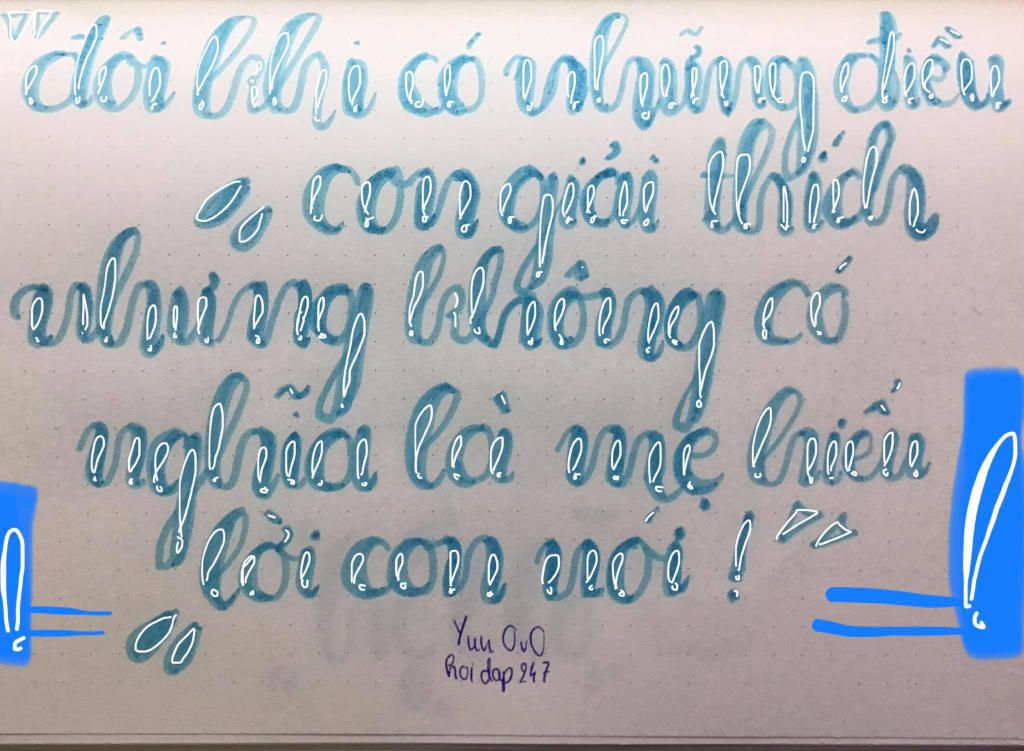 "đôi khi có những điều
con giải thích
nhưng không có
nghĩa là mẹ hiểu
lời con nói !"
Yuu OvO
hoi dap 247